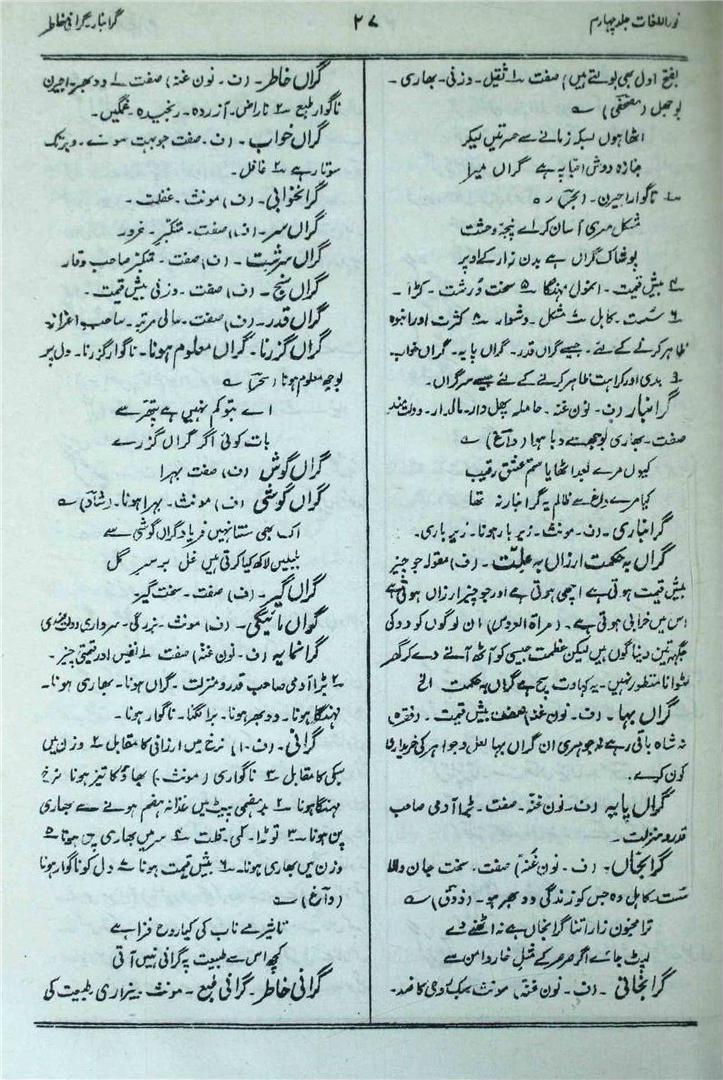 نور اللغات جلد چہارم
۲۷
گرانبار۔ گرانی خاطر
بفتح اول بھی بولتے ہیں) صفت ۱ ثقیل۔ وزنی۔ بھاری۔
بوجھل (مصحفی) ؎
اٹھا ہوں بسکہ زمانے سے حسرتیں لیکر
جنازہ دوش احبا پہ ہے گراں میرا
ناگوار اجیرن۔
مشکل مری آسان کر اے پنجۂ وحشت
پوشاک گراں ہے بدن زار کے اوپر
۴ بیش قیمت۔ انمول مہنگا ۵ سخت درشت۔ کڑا۔
۶ سست۔ کاہل ۷ مشکل۔ دشوار ۸ کثرت اور انبوہ
ظاہر کرنے کے لئے۔ جیسے گراں قدر۔ گراں پایہ۔ گراں خواب۔
۹ بدی اور کراہت ظاہر کرنے کے لئے جیسے سرگراں۔
گرانبار (ف۔ نون غنہ۔ حاملہ۔ پھل دار۔ مالدار۔ دولت مند
صفت۔ بھاری بوجھ سے دبا ہوا (داغ) ؎
کیوں مرے بعد اٹھایا ستم عشق رقیب
کیا مرے داغ سے ظالم یہ گرانبار نہ تھا
گرانباری۔ (ف۔ مونث۔ زیر بار ہونا۔ زیر باری۔
گراں بہ حکمت ارزاں بہ علت۔ (ف) مقولہ جو چیز
بیش قیمت ہوتی ہے اچھی ہوتی ہے اور جو چیز ارزاں ہوتی ہے
اس میں خرابی ہوتی ہے۔ (مراۃ العروس) ان لوگوں کو دو کی
جگہ تین دینا گوں ہیں لیکن عظمت جیسی کو آٹھ آنے دے کر گھر
لٹوانا منظور نہیں۔ یہ کہاوت سچ ہے گراں بہ حکمت الخ
گراں بہا۔ (ف۔ نون غنہ) صفت بیش قیمت۔
نہ شاہ باقی رہے نہ جوہری ان گراں بہا لعل و جواہر کی خریداری
کون کرے۔
گراں پایہ (ف۔ نون غنہ۔ صفت۔ بڑا آدمی صاحب
قدر و منزلت۔
گرانجاں۔ (ف۔ نون غنہ) صفت۔ سخت جان والا
سست۔ کاہل وہ جس کو زندگی دوبھر ہو۔ (ذوق) ؎
ترا مجنون زار اتنا گرانجاں ہے نہ اٹھنے دے
لپٹ جائے اگر مر مر کے مثل خار دامن سے
گرانجانی۔ (ف۔ نون غنہ) مونث۔ سبک روحی کا ضد۔
گراں خاطر۔ (ف۔ نون غنہ) صفت ۱ دوبھر۔ اجیرن
ناگوار طبع۔ ۲ ناراض۔ آزردہ۔ رنجیدہ۔ غمگیں۔
گراں خواب۔ (ف۔ صفت جو بہت سوئے۔ دیر تک
سوتا رہے ۲ غافل۔
گرانخوابی۔ (ف) مونث۔ غفلت۔
گراں سر۔ (ف) صفت۔ متکبر۔ مغرور
گراں سرشت۔ (ف) صفت۔ متکبر۔ صاحب وقار
گراں سنج۔ (ف) صفت۔ وزنی بیش قیمت۔
گراں قدر۔ (ف) صفت۔ عالی مرتبہ۔ صاحب اعزاز۔
گراں گزرنا۔ گراں معلوم ہونا۔ ناگوار گزرنا۔ دل پر
بوجھ معلوم ہونا ؎
اے بتو کم نہیں ہے پتھر سے
بات کوئی اگر گراں گزرے
گراں گوش (ف) صفت بہرا
گراں گوشی (ف) مونث۔ بہرا ہونا۔ (شاد) ؎
اک بھی سنتا نہیں فریاد گراں گوشی سے
بلبلیں لاکھ کیا کرتی ہیں غل بر سر گل
گراں گیر۔ (ف) صفت۔ سخت گیر۔
گراں مائیگی۔ (ف) مونث۔ بزرگی۔ سرداری دولتمندی
گرانمایہ (ف۔ نون غنہ) صفت ۱ نفیس اور قیمتی چیز۔
۲ بڑا آدمی صاحب قدر و منزلت۔ گراں ہونا۔ بھاری ہونا۔
مہنگا ہونا۔ دوبھر ہونا۔ برا لگنا۔ ناگوار ہونا۔
گرانی۔ (ف۔) ۱ نرخ میں ارزانی کا مقابل ۲ وزن میں
سبکی کا مقابل ۳ ناگواری (مونث۔) بھاؤ کا تیز ہونا نرخ
مہنگا ہونا۔ ۲ بدہضمی پیٹ میں غذا نہ ہضم ہونے سے بھاری
پن ہونا۔ ۳ توڑا۔ کمی۔ قلت ۴ سر میں بھاری پن ہونا ۵
وزن میں بھاری ہونا۔ ۶ بیش قیمت ہونا ۷ دل کو ناگوار ہونا
(داغ) ؎
تاثیر مے ناب کی کیا روح فزا ہے
کچھ اس سے طبیعت پہ گرانی نہیں آتی
گرانی خاطر۔ گرانی طبع۔ مونث۔ بیزاری طبیعت کی